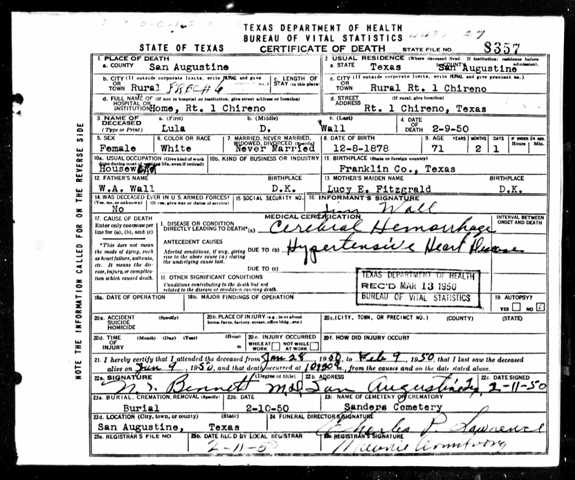 TEXAS DEPARTMENT OF HEALTH
BUREAU OF VITAL STATISTICS
STATE OF TEXAS CERTIFICATE OF DEATH STATE FILE NO. 8357
1. PLACE OF DEATH
a. COUNTY San Augustine
2. USUAL RESIDENCE (Where deceased lived. If institution: residence before admission)
a. STATE Texas b. COUNTY San Augustine
b. CITY (If outside corporate limits, write RURAL and give
OR
TOWN Rural
c. LENGTH OF
STAY (in this place)
c. CITY (If outside corporate limits, write RURAL and give precinct no.)
OR
TOWN Rural Rt. 1 Chireno
d. FULL NAME OF (If not in hospital or institution, give street address or location)
HOSPITAL OR
INSTITUTION Home, Rt. 1 Chireno
d. STREET (If rural, give location)
ADDRESS Rt. 1 Chireno, Texas
3. NAME OF
DECEASED
(Type or Print)
a. (First) Lula
b. (Middle) D.
c. (Last) Wall
4. DATE
OF
DEATH 2-9-50
5. SEX Female
6. COLOR OR RACE White
7. MARRIED, NEVER MARRIED,
WIDOWED, DIVORCED (Specify)
Never Married
8. DATE OF BIRTH 12-8-1878
9. AGE YEARS 71 MONTHS 2 DAYS 1
10a. USUAL OCCUPATION (Give kind of work
Housewife
10b. KIND OF BUSINESS OR INDUSTRY
11. BIRTHPLACE (State or foreign country)
Franklin Co., Texas
12. FATHER'S NAME BIRTHPLACE
W.A. Wall D.K.
13. MOTHER'S MAIDEN NAME BIRTHPLACE
Lucy E. Fitzgrald D.K.
14. WAS DECEASED EVER IN U.S. ARMED FORCES?
No
15. SOCIAL SECURITY NO.
16. INFORMANT'S SIGNATURE
Jim Wall
17. CAUSE OF DEATH
Enter only one cause per
line for (a), (b), and (c)
MEDICAL CERTIFICATION
INTERVAL BETWEEN
ONSET AND DEATH
I. DISEASE OR CONDITION
DIRECTLY LEADING TO DEATH* (a) Cerebral Hemorrhage
*This does not mean
the mode of dying, such
as heart failure, asthenia,
etc. It means the disease, injury, or complication which caused death.
ANTECEDENT CAUSES
Morbid conditions, if any, giving
rise to the above cause (a) stating
the underlying cause last.
DUE TO (b) Hypertensive Heart Disease
DUE TO (c)
II OTHER SIGNIFICANT CONDITIONS
Conditions contributing to the death but not
related to the disease or condition causing death.
TEXAS DEPARTMENT OF HEALTH
REC'D MAR 13 1950
BUREAU OF VITAL STATISTICS
18a. DATE OF OPERATION
18b. MAJOR FINDINGS OF OPERATION
19. AUTOPSY?
YES NO
20a. ACCIDENT
SUICIDE
HOMICIDE
20b. PLACE OF INJURY (e.g., in or about
home, farm, factory, street, office bldg., etc.)
20c. (CITY, TOWN, OR PRECINCT NO.) (COUNTY) (STATE)
20d. TIME (Month) (Day) (Year) (Hour)
OF
INJURY
20e. INJURY OCCURRED
WHILE AT WORK NOT WHILE AT WORK
20f. HOW DID INJURY OCCUR?
21. I hereby certify that I attended the deceased from Jan 28 1950, to Feb 9, 1950, that I last saw the deceased
alive on Jan 9, 1950, and that death occurred at m., from the causes and on the date stated above.
22a. SIGNATURE (Degree or title)
Bennett MD
22b. ADDRESS
San Augustine, Tx
22c. DATE SIGNED
2-11-50
23a. BURIAL, CREMATION, REMOVAL (Specify)
Burial
23b. DATE
2-10-50
23c. NAME OF CEMETERY OR CREMATORY
Sanders Cemetery
23d. LOCATION (City, town, or county) (State)
San Augustine, Texas
24. FUNERAL DIRECTOR'S SIGNATURE
Charles P. Lawrence
25a. REGISTRAR'S FILE NO.
25b. DATE REC'D BY LOCAL REGISTRAR
2-11-50
25c. REGISTRAR'S SIGNATURE
Armstrong
NOTE THE INFORMATION CALLED FOR ON THE REVERSE SIDE